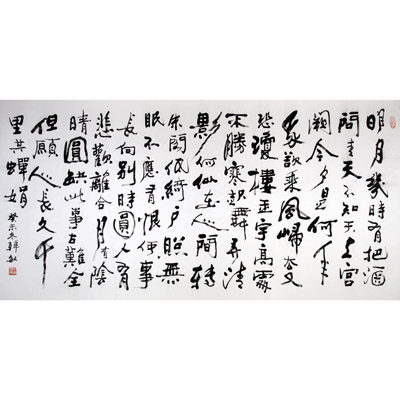 明月幾時有把酒
問青天不知天上宮
闕今夕是何年
我欲乘風歸去又
恐瓊樓玉宇高處
不勝寒起舞弄清
影何似在人間轉
朱閣低綺戶照無
眠不應有恨何事
長向別時圓人有
悲歡離合月有陰
晴圓缺此事古難全
但願人長久千
里共嬋娟
癸未冬